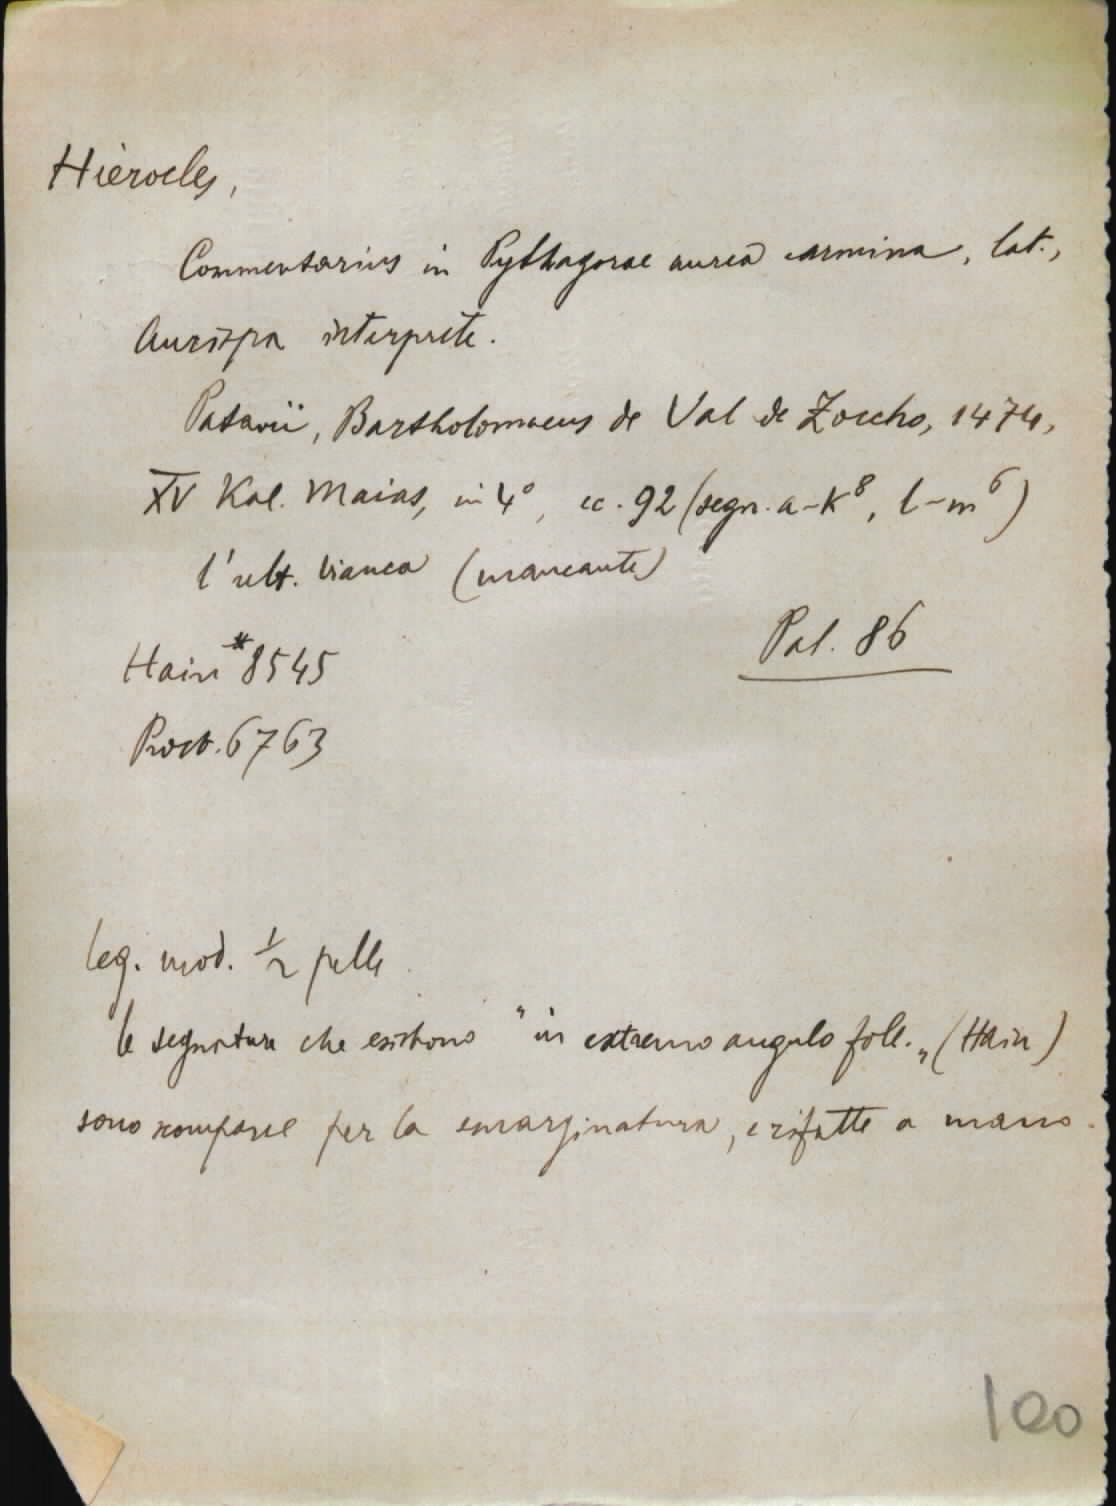 Hierocles,
Commentarius in Pythagorae aurea carmina, lat.,
Aurispa interprete.
Patavii, Bartholomaeus de Val de Zoccho, 1474,
XV Kal. Maias, in 4°, cc. 92 (segn. a-k⁸, l-m⁶)
l'ult. bianca (mancante)
Pal. 86
Hain *8545
Proct. 6763
leg. mod. ½ pelle
le segnature che esistono "in extremo angulo foll." (Hain)
sono scomparse per la smarginatura, e rifatte a mano.
100